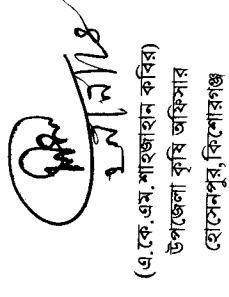 (এ.কে.এম.শাহজাহান কবির)
উপজেলা কৃষি অফিসার
হোসেনপুর,কিশোরগঞ্জ